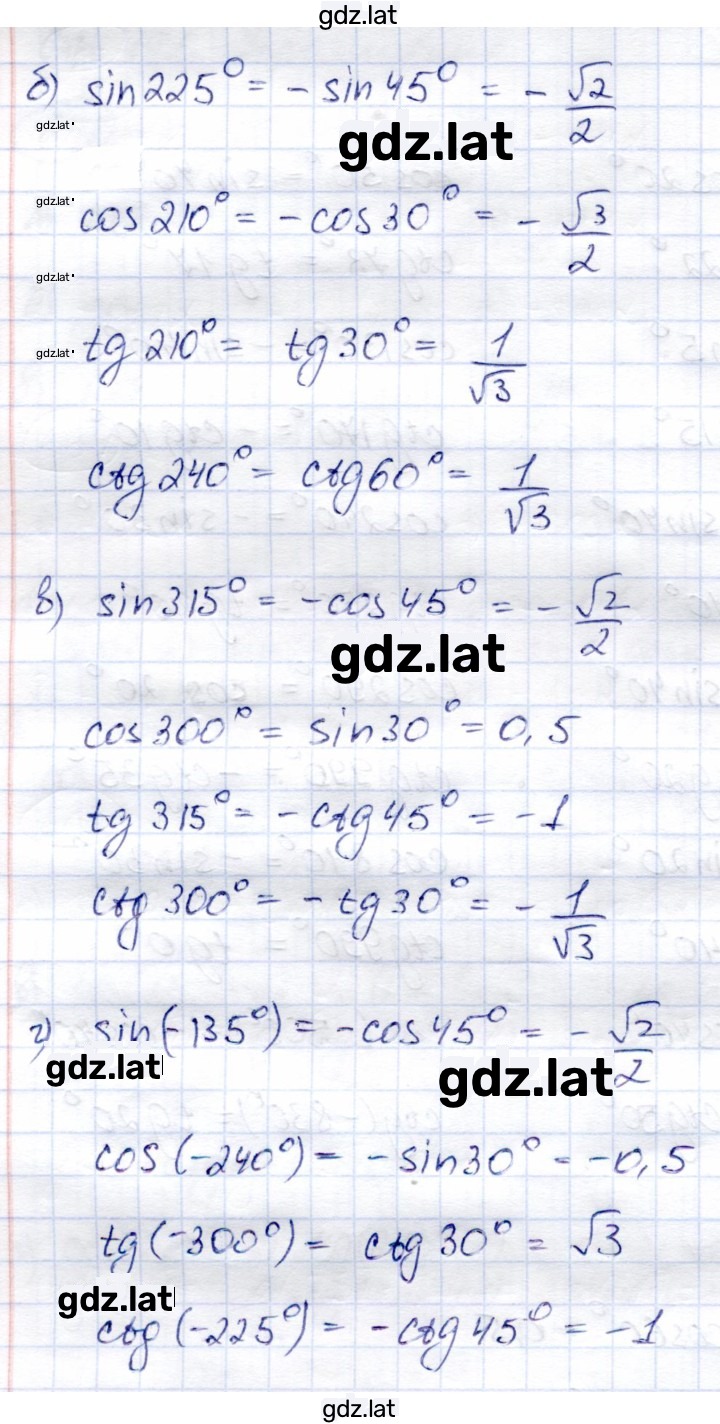 gdz.lat
б) sin 225° = - sin 45° = - √2/2
gdz.lat
gdz.lat
gdz.lat
cos 210° = - cos 30° = - √3/2
gdz.lat
gdz.lat
tg 210° = tg 30° = 1/√3
ctg 240° = ctg 60° = 1/√3
в) sin 315° = - cos 45° = - √2/2
gdz.lat
cos 300° = sin 30° = 0,5
tg 315° = - ctg 45° = -1
ctg 300° = - tg 30° = - 1/√3
г) sin (-135°) = - cos 45° = - √2/2
gdz.lat
gdz.lat
cos (-240°) = - sin 30° = -0,5
tg (-300°) = ctg 30° = √3
gdz.lat
ctg (-225°) = - ctg 45° = -1
gdz.lat